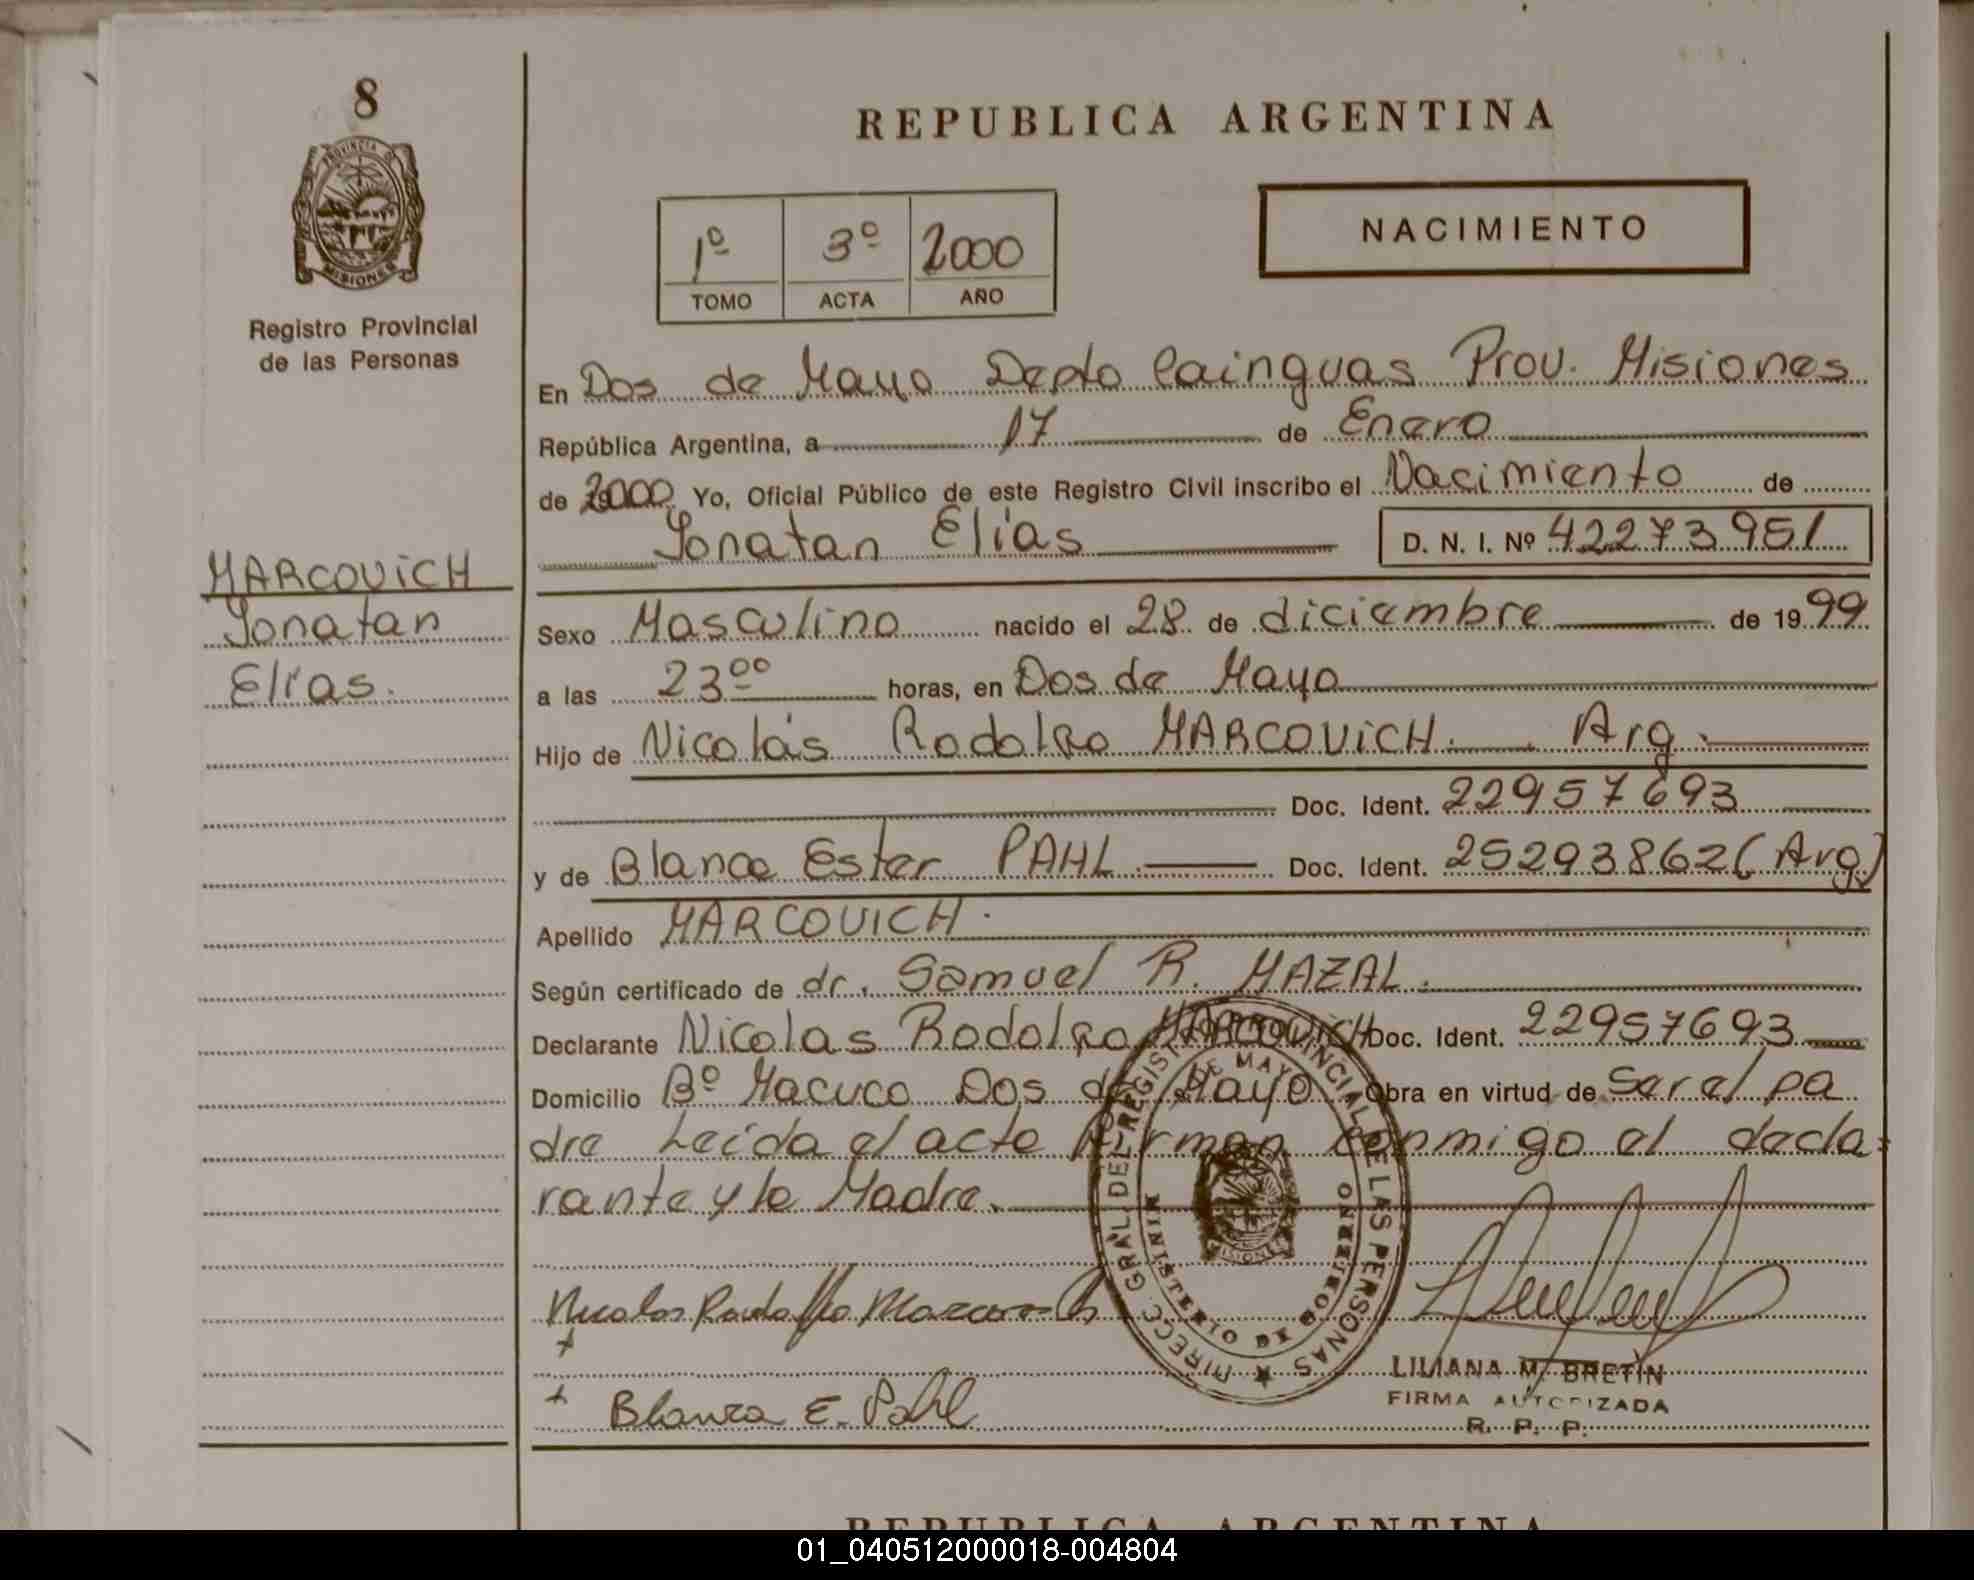 8
PROVINCIA DE
MISIONES
Registro Provincial
de las Personas
MARCOVICH
Jonatan
Elías.
REPUBLICA ARGENTINA
NACIMIENTO
1º 3º 2000
TOMO ACTA AÑO
En Dos de Mayo Depto Cainguas Prov. Misiones
República Argentina, a 17 de Enero
de 2000 Yo, Oficial Público de este Registro Civil inscribo el Nacimiento de
Jonatan Elías D. N. I. Nº 42273951
Sexo Masculino nacido el 28 de diciembre de 1999
a las 23ºº horas, en Dos de Mayo
Hijo de Nicolás Rodolfo MARCOVICH. Arg.
Doc. Ident. 22957693
y de Blanca Ester PAHL. Doc. Ident. 25293862 (Arg)
Apellido MARCOVICH.
Según certificado de dr. Samuel R. MAZAL.
Declarante Nicolas Rodolfo MARCOVICH Doc. Ident. 22957693
Domicilio Bº Macuco Dos de Mayo Obra en virtud de ser el pa
dre Leída el acta firman conmigo el decla-
rante y la Madre.
DIRECC. GRAL. DEL REGISTRO PROVINCIAL DE LAS PERSONAS
2 DE MAYO
MISIONES
MINISTERIO DE GOBIERNO
Nicolas Rodolfo Marcovich
+
+ Blanca E. Pahl
LILIANA M. BRETÍN
FIRMA AUTORIZADA
R. P. P.
REPUBLICA ARGENTINA
01_040512000018-004804